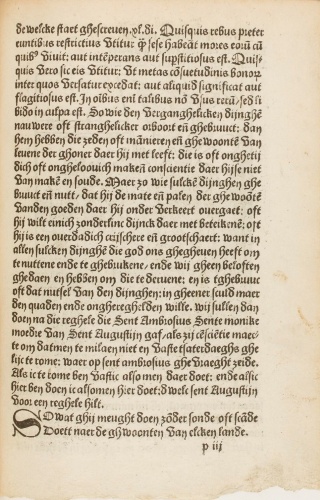 de welcke staet ghescreuen .xl.di. Quisquis rebus preter
euntibus restrictius vtitur ꝙ sese habeāt mores eorū cū
quibꝰ viuit: aut intēperans aut supstitiosus est. Quis-
quis vero sic eis vtitur: vt metas cōsuetudinis bonoꝝ
inter quos versatur excedat: aut aliquid significat aut
flagitiosus est. In oībus enī talibus nō vsus rerū / sed li
bido in culpa est. So wie den verganghelicken dijnghē
nauwere oft stranghelicker orboort eñ ghebruuct: dan
hem hebben die zeden oft mānieren eñ ghewoonte van
leuene der ghoner daer hij met leeft: die is oft onghetij
dich oft ongheloouich maken̄ conscientie daer hijse niet
van makē en soude. Maer zo wie sulckē dijnghen ghe
bruuct eñ nutt / dat hij de mate eñ palen der ghewoōte
vanden goeden daer hij onder verkeert ouergaet: oft
hij wilt eenich zonderlinc dijnck daer met beteikenē; oft
hij is een ouerdadich existchere eñ grootschaert: want in
allen sulcken dijnghē die god ons ghegheuen heeft om
te nuttene ende te ghebrukene / ende wij gheen beloften
ghedaen en hebbēn om die te deruene; en is tghebruuc
oft dat nutsel van den dijnghen; in gheener sculd maer
den quaden ende ongheregheldē wille. Wij sullen dan
doen na die reghele die Sent Ambrosius Sente monike
moedre van Sent Augustijn gaf / als zij cōsciētie maec-
te om datmen te milaen niet en vastet tsaterdaeghs ghe
lijc te rome; waer op sent ambrosius ghevraeght zeide.
Als ic te rome ben vastic also men daer doet; ende als ic
hier ben doen ic alsomen hier doet; dwelc sent Augustijn
voor een reghele hilt.
SO wat ghij meught doen zōder sonde oft scāde
Doett naer de ghwoonten van elcken lande.
p iij